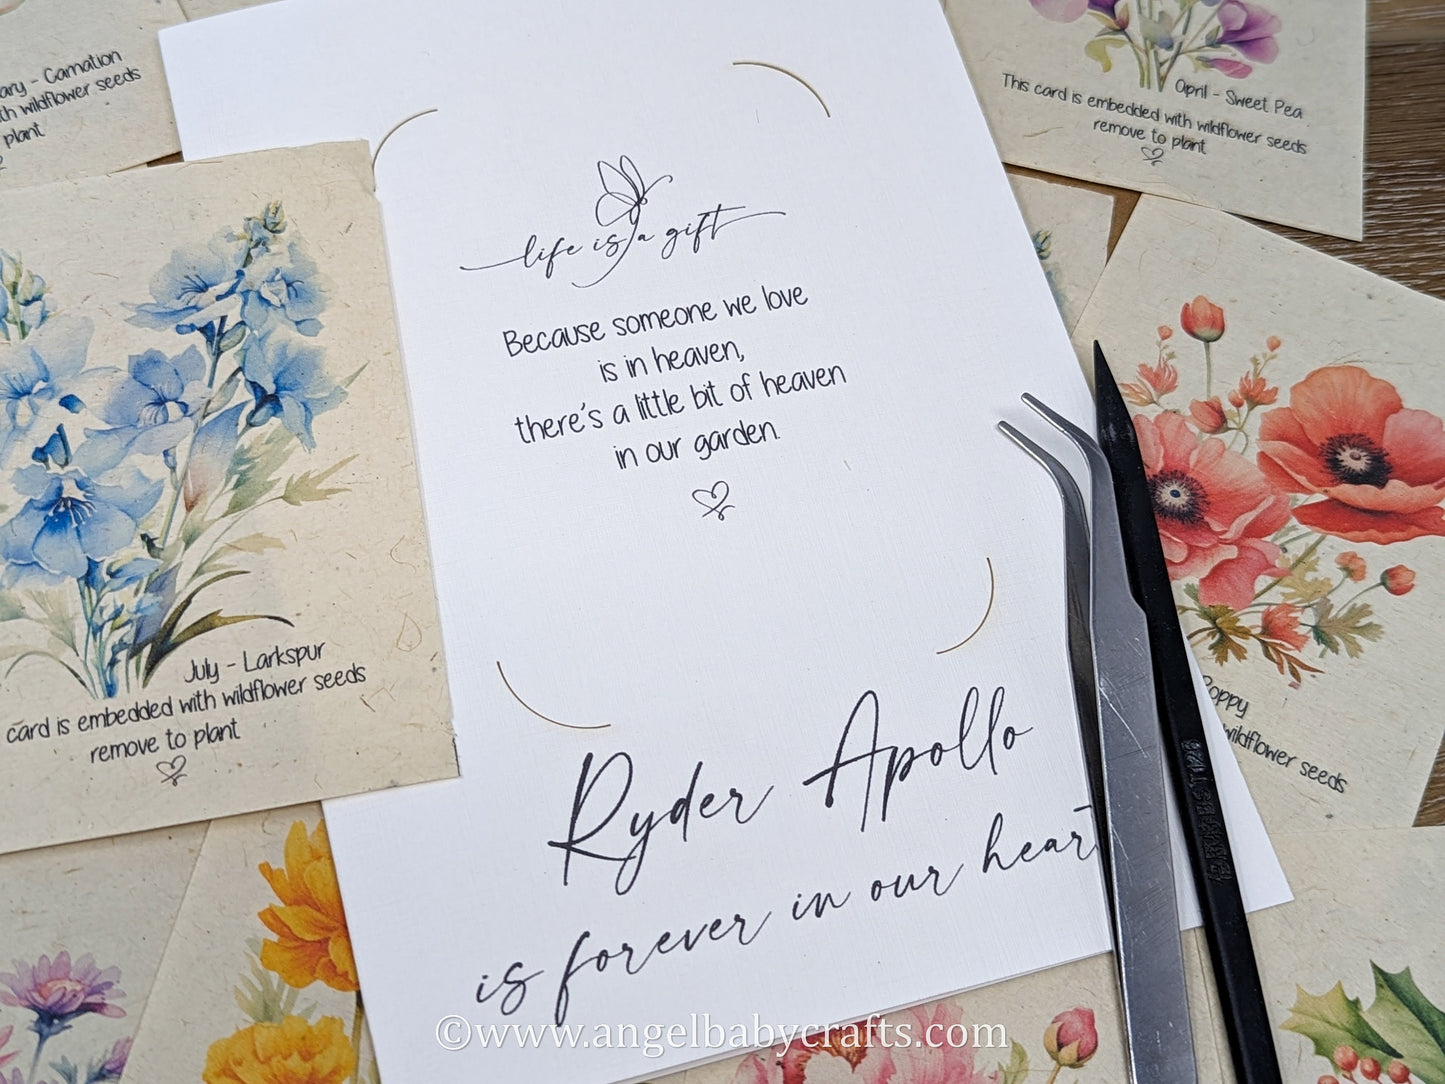 ary - Carnation
th wildflower seeds
plant
April - Sweet Pea
This card is embedded with wildflower seeds
remove to plant
life is a gift
Because someone we love
is in heaven,
there's a little bit of heaven
in our garden.
July - Larkspur
card is embedded with wildflower seeds
remove to plant
Poppy
wildflower seeds
Ryder Apollo
is forever in our heart
©www.angelbabycrafts.com